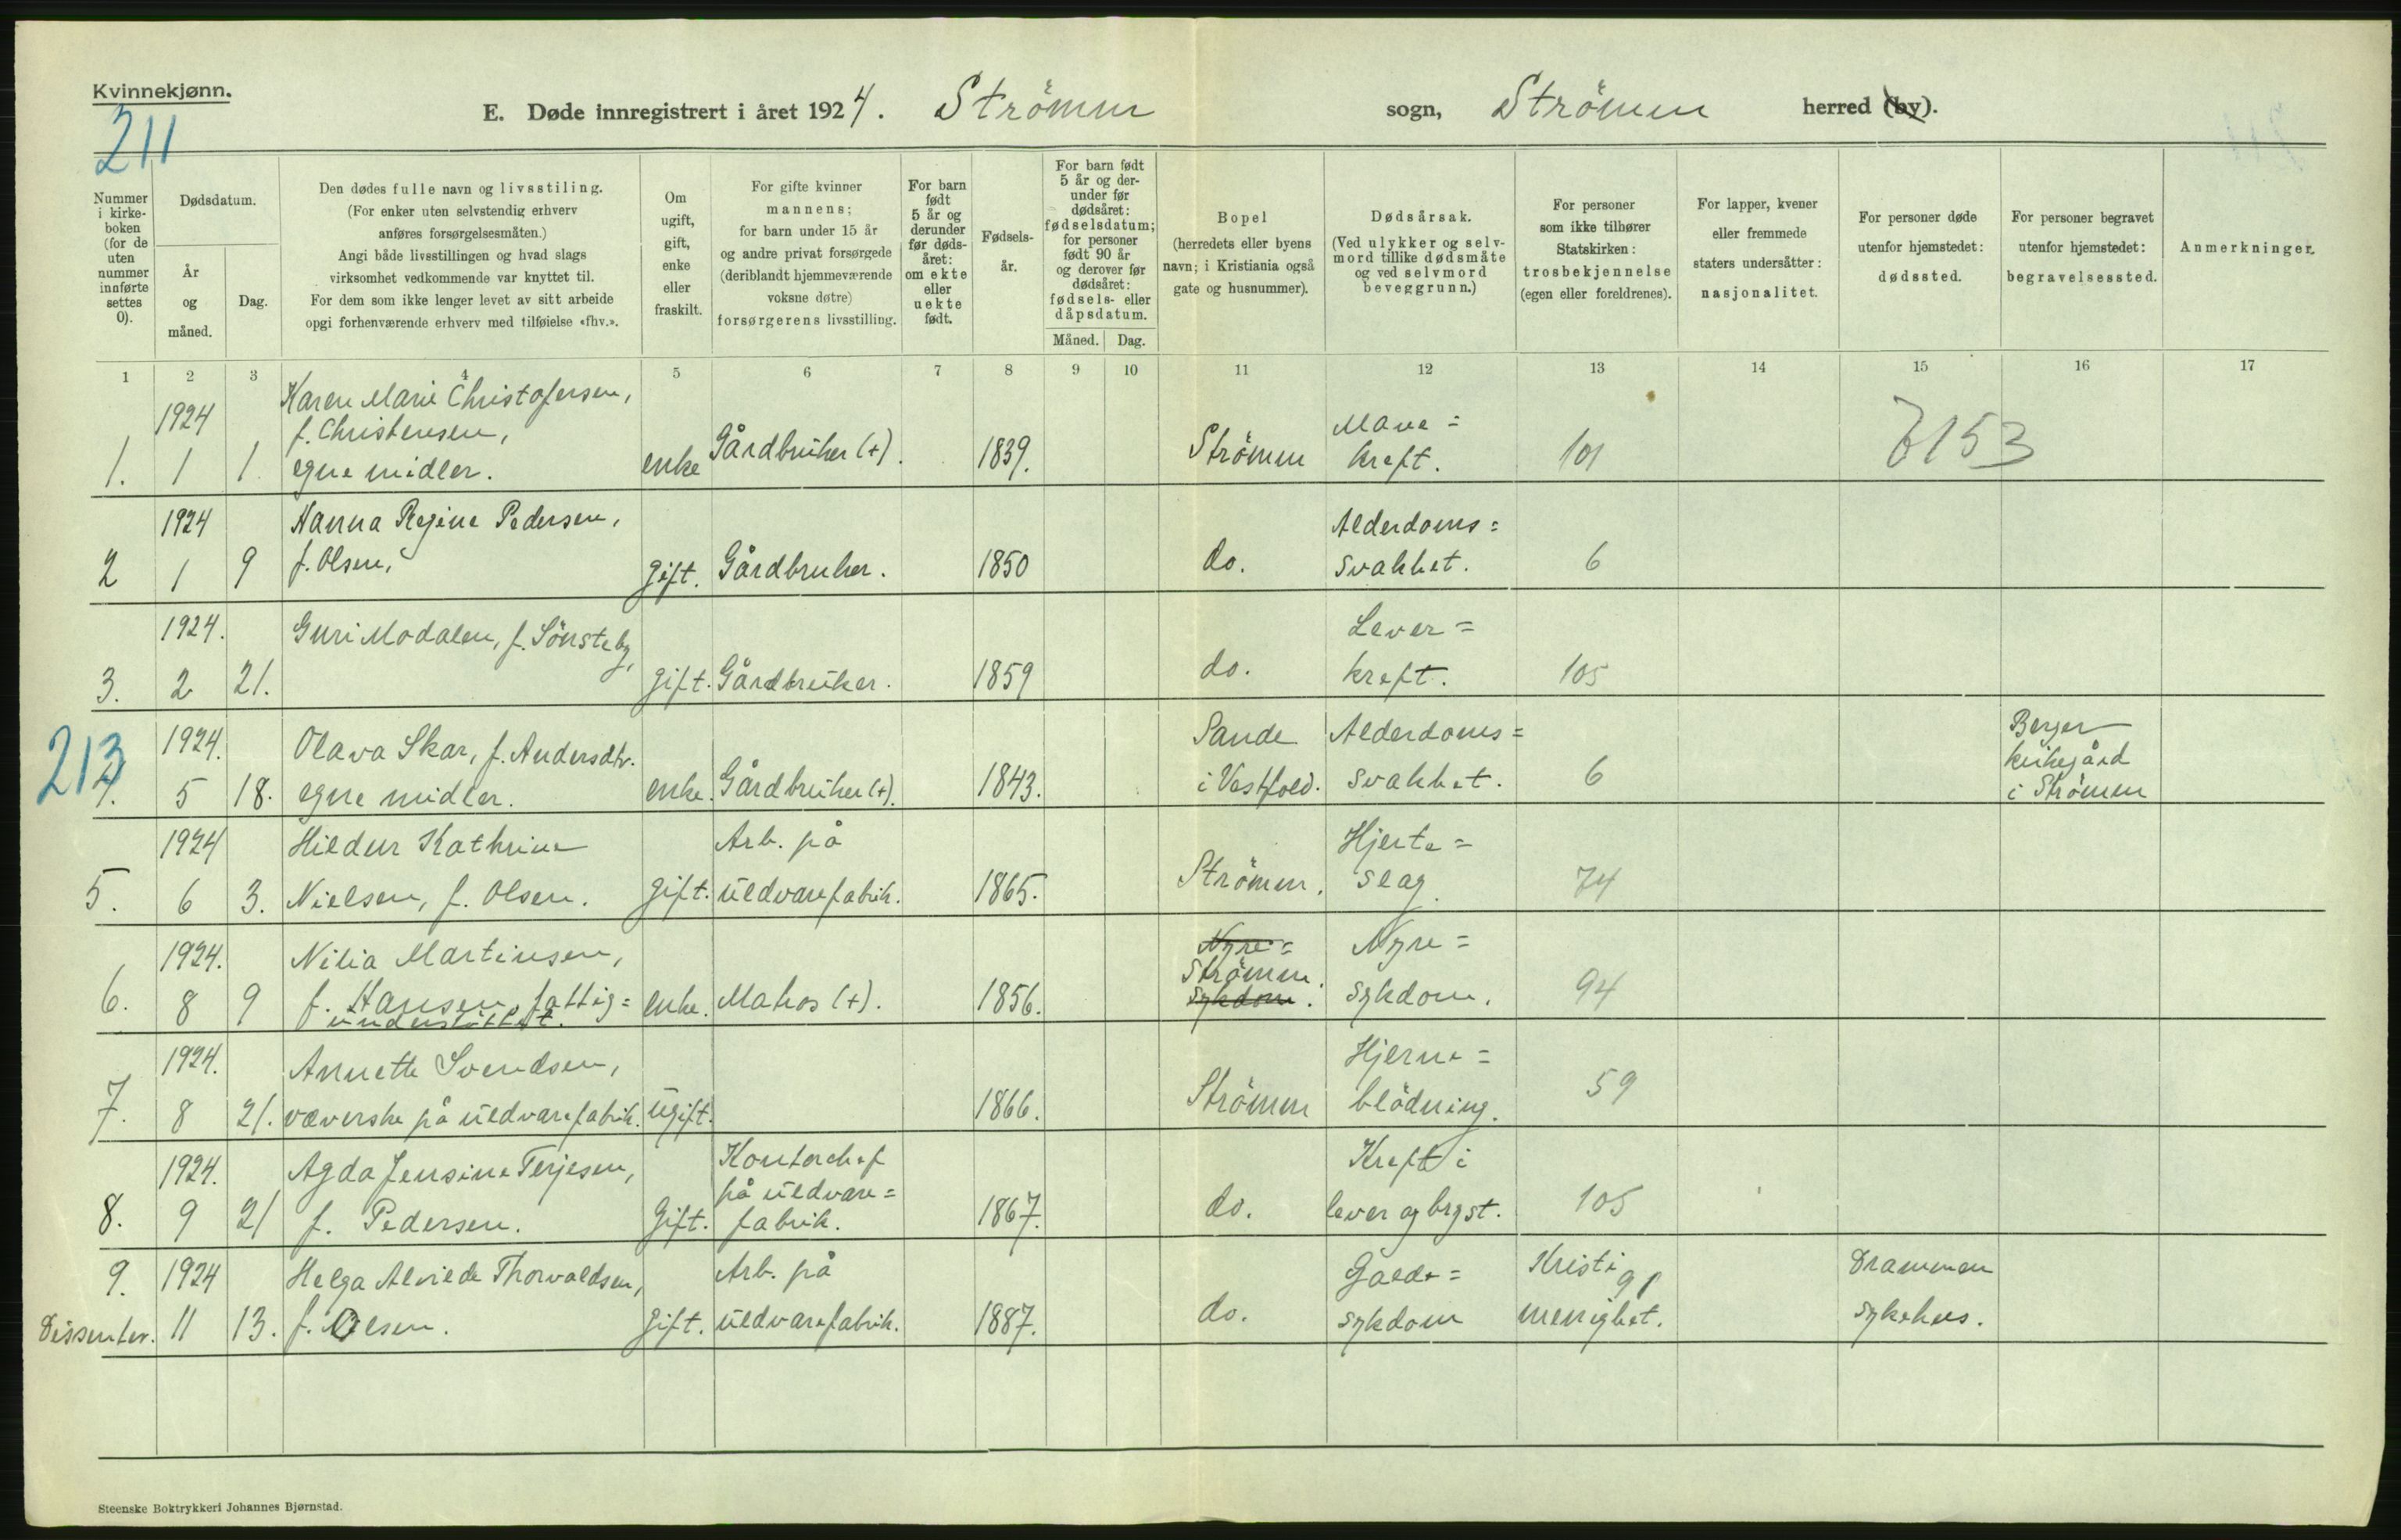 Kvinnekjønn.
211
E. Døde innregistrert i året 1924. Strömm sogn, Strömm herred (by).
Nummer i kirke-boken (for de uten nummer innførte settes 0).
Dødsdatum.
År og måned.
Dag.
Den dødes fulle navn og livsstiling.
(For enker uten selvstendig erhverv
anføres forsørgelsesmåten.)
Angi både livsstillingen og hvad slags
virksomhet vedkommende var knyttet til.
For dem som ikke lenger levet av sitt arbeide
opgi forhenværende erhverv med tilføielse «fhv.».
Om ugift, gift, enke eller fraskilt.
For gifte kvinner
mannens;
for barn under 15 år
og andre privat forsørgede
(deriblandt hjemmeværende
voksne døtre)
forsørgerens livsstilling.
For barn født 5 år og derunder før døds-året: om ekte eller uekte født.
Fødsels-år.
For barn født 5 år og der-under før dødsåret: fødselsdatum; for personer født 90 år og derover før dødsåret: fødsels- eller dåpsdatum.
Måned. Dag.
Bopel
(herredets eller byens
navn; i Kristiania også
gate og husnummer).
Dødsårsak.
(Ved ulykker og selv-
mord tillike dødsmåte
og ved selvmord
beveggrunn.)
For personer
som ikke tilhører
Statskirken:
trosbekjennelse
(egen eller foreldrenes).
For lapper, kvener
eller fremmede
staters undersåtter:
nasjonalitet.
For personer døde
utenfor hjemstedet:
dødssted.
For personer begravet
utenfor hjemstedet:
begravelsessted.
Anmerkninger.
1 2 3 4 5 6 7 8 9 10 11 12 13 14 15 16 17
1. 1924 1 1 Karen Marie Christofersen,
f. Christensen,
egne midler. enke Gårdbruker (+). 1839. Strömm Mave=
kreft. 101 7153
2 1924 1 9 Hanna Regine Pedersen,
f. Olsen, gift. Gårdbruker. 1850 do. Alderdoms=
svakhet. 6
3. 1924. 2 21. Guri Modalen, f. Sönsteby,
gift. Gårdbruker. 1859 do. Lever=
kreft. 105
213
4. 1924. 5 18. Olava Skar, f. Andersdtr.
egne midler. enke. Gårdbruker (+). 1843. Sande
i Vestfold. Alderdoms=
svakhet. 6 Berger
kirkegård
i Strömm
5. 1924 6 3. Hildur Kathrine
Nielsen, f. Olsen. gift. Arb. på
uldvarefabrik. 1865. Strömm. Hjerte=
slag. 74
6. 1924. 8 9 Nilia Martinsen,
f. Hansen, fattig=
understöttet. enke. Matros (+). 1856. Nyre=
Strömm.
sykdom. Nyre=
sykdom. 94
7. 1924. 8 21. Annette Svendsen,
væverske på uldvarefabrik. ugift. 1866. Strömm Hjerne=
blödning. 59
8. 1924. 9 21 Agda Jensine Terjesen,
f. Pedersen. Gift. Kontorchef
på uldvare=
fabrik. 1867. do. Kreft i
lever og bryst. 105
9. Dissenter. 1924 11 13. Helga Alvilde Thorvaldsen,
f. Olsen. gift. Arb. på
uldvarefabrik. 1887. do. Galde=
sykdom Kristi 91
menighet. Drammen
sykehus.
Steenske Boktrykkeri Johannes Bjørnstad.